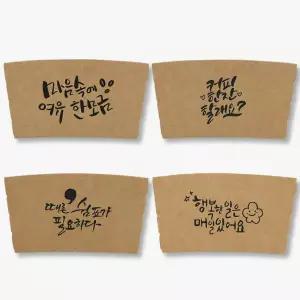 마음속에
여유 한모금
커피
한잔
할래요?
때론 쉼표가
필요하다
행복한 일은
매일있어요